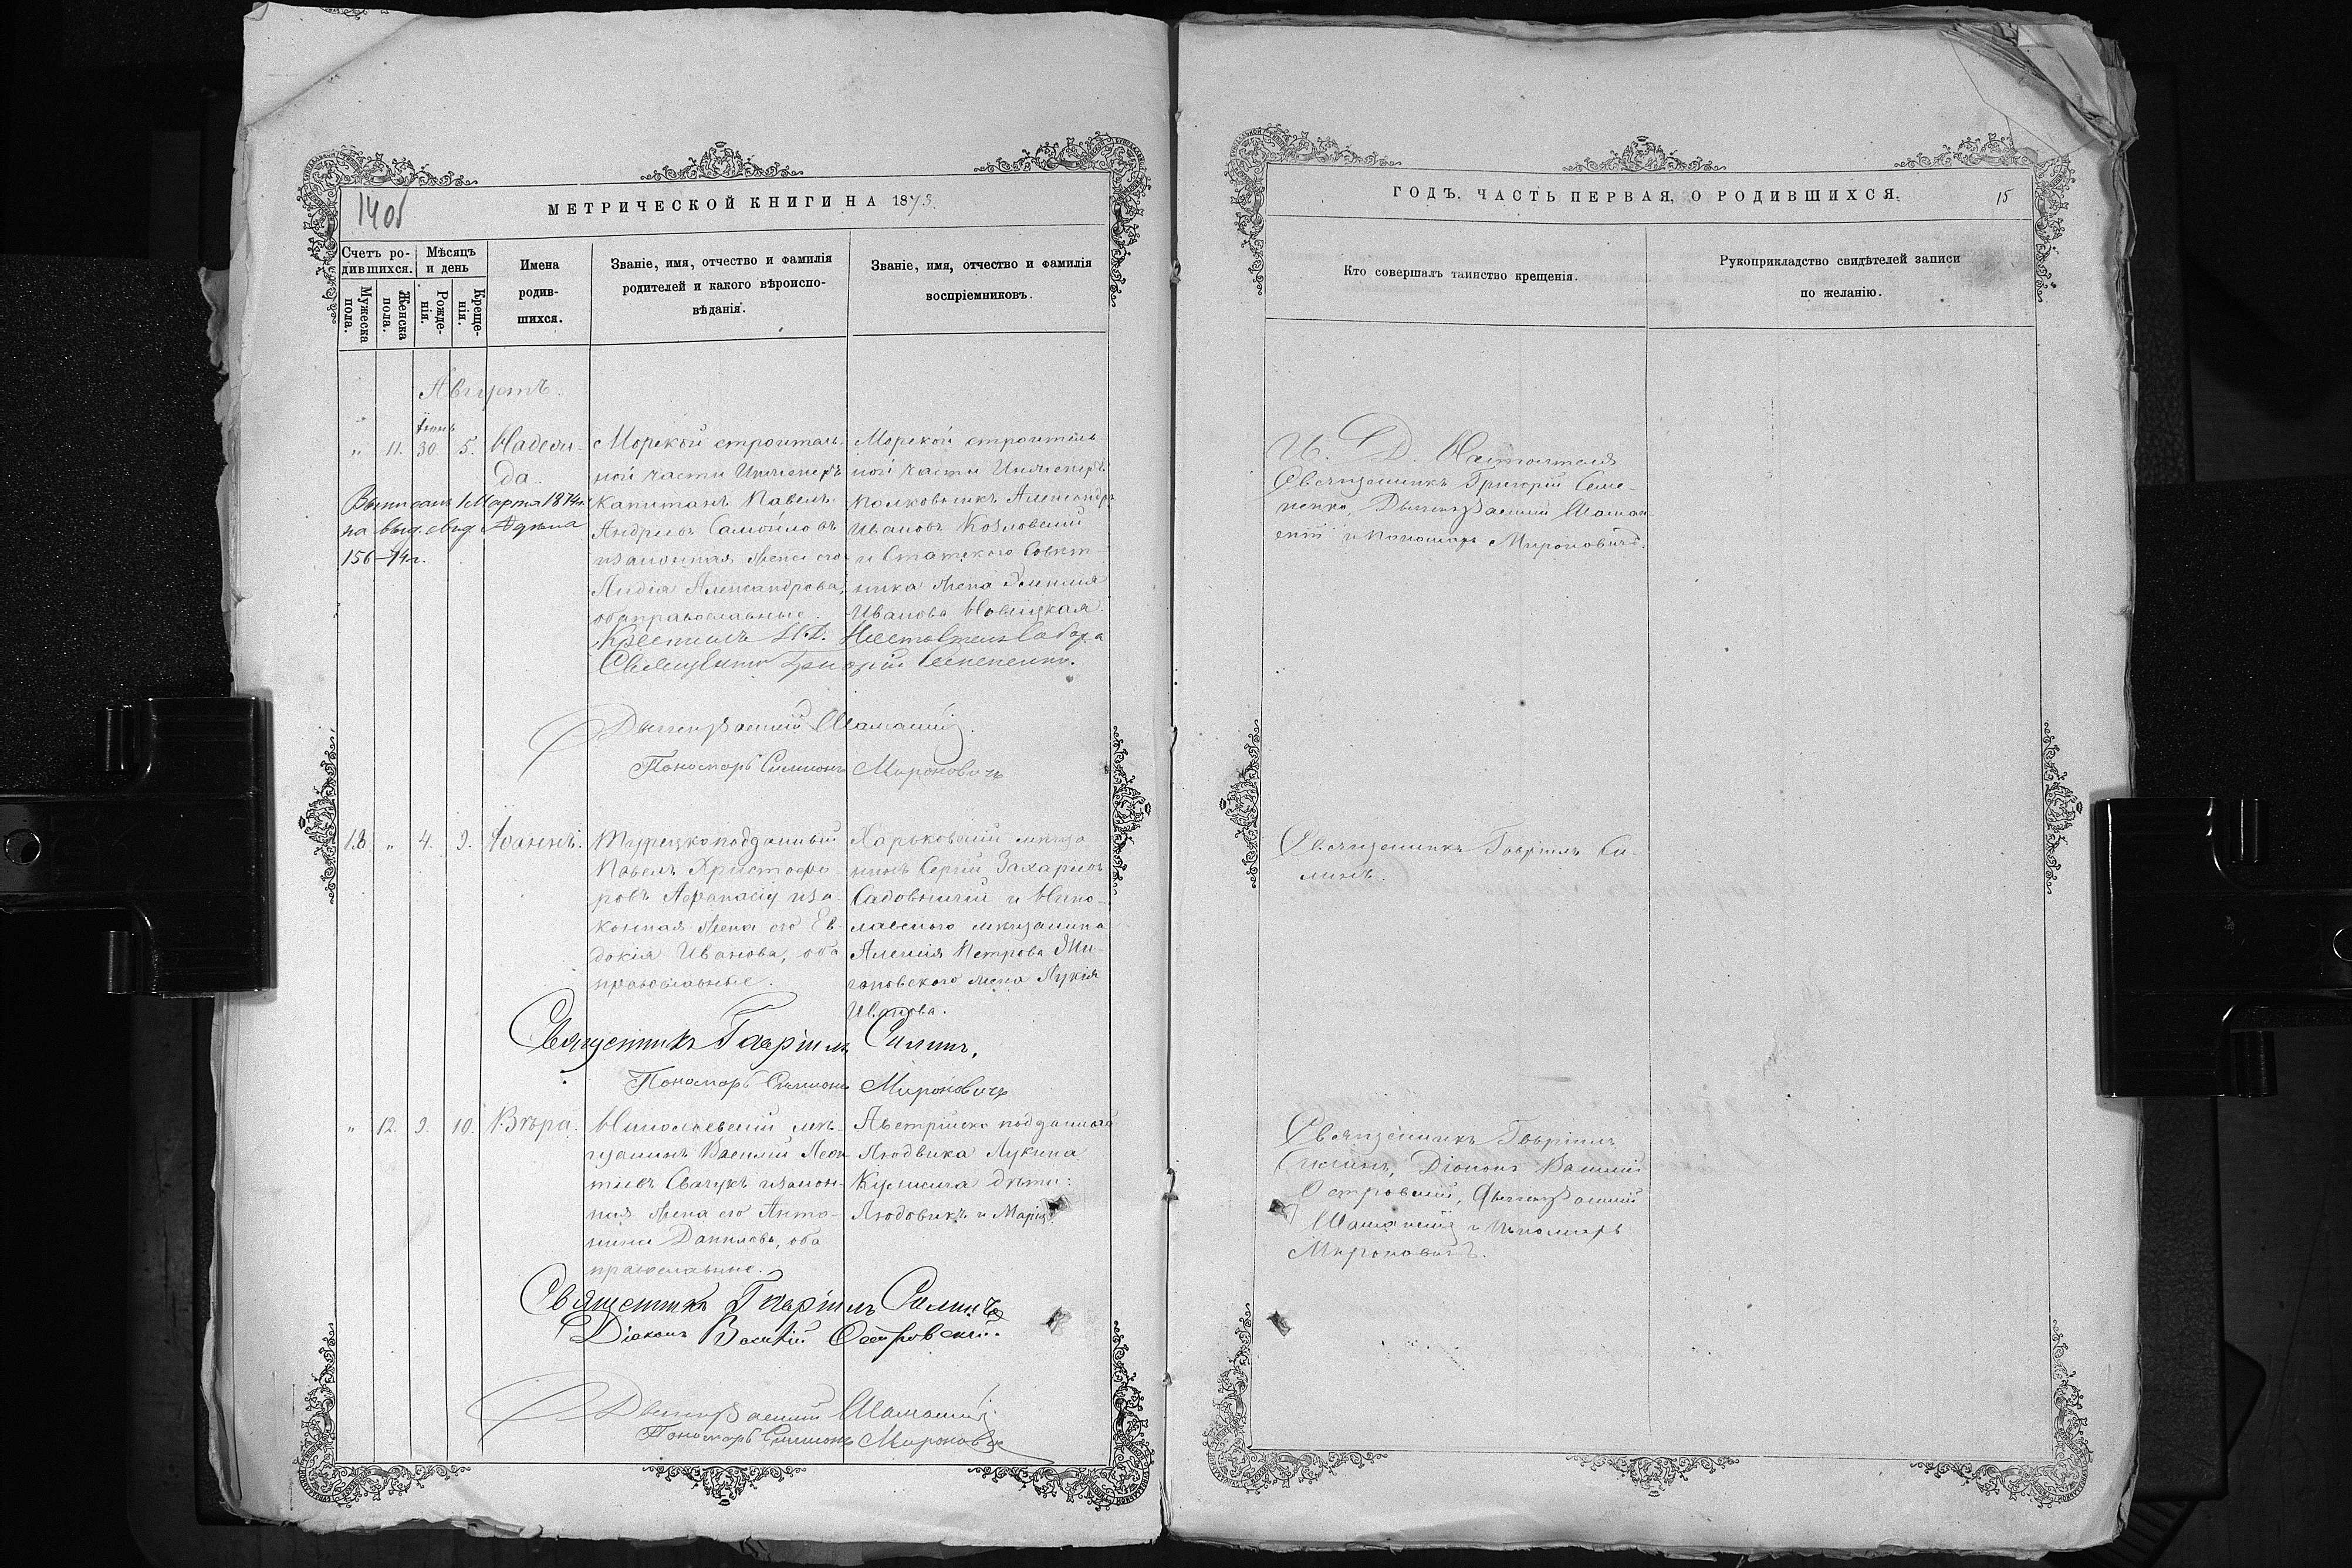 1405
МЕТРИЧЕСКОЙ КНИГИ НА 1873.
Счетъ ро-
дившихся.
Мѣсяцъ
и день
Мужеска
пола.
Женска
пола.
Рожде-
нія.
Креще-
нія.
Имена
родив-
шихся.
Званіе, имя, отчество и фамилія
родителей и какого вѣроиспо-
вѣданія.
Званіе, имя, отчество и фамилія
воспріемниковъ.
Августъ.
„ 11. 30. 5. Надеж-
да.
Выписана 1 Марта 1874 г.
на выд. свид.
156—74 г.
Морской строитель-
ной части Инженеръ
Капитанъ Павелъ
Андреевъ Самойловъ
изаконная жена его
Лидія Александрова,
обаправославные.
Морской строитель
ной части Инженеръ
Полковникъ Александръ
Ивановъ Козловскій
и Статскаго Совѣт-
ника жена Эмилія
Иванова Новицкая.
Крестилъ И.Д. Настоятеля Собора
Священникъ Григорій Семененко.
Дьячекъ Василій Шаманскій.
Пономарь Симеонъ Мироновичъ
18 „ 4. 9. Іоаннъ.
Турецкоподданный
Павелъ Христофо-
ровъ Афанасіу иза-
конная жена его Ев-
докія Иванова, оба
православные.
Харьковскій мѣща
нинъ Сергій Захаріевъ
Садовничій и Нико-
лаевского мѣщанина
Алексія Петрова
жена Лукія
Иванова.
Священникъ Гавріилъ Силинъ.
Пономарь Симеонъ Мироновичъ
„ 12. 9. 10. Вѣра.
Николаевскій мѣ-
щанинъ Василій Леон
тіевъ Свачукъ изакон-
ная жена его Анто-
нина Данилова, оба
православные.
Австрійско подданного
Людвика Лукина
дѣти:
Людовикъ и Марія.
Священникъ Гавріилъ Силинъ
Діаконъ Василій Островскій.
Дьячекъ Василій Шаманскій.
Пономарь Симеонъ Мироновичъ
ГОДЪ. ЧАСТЬ ПЕРВАЯ, О РОДИВШИХСЯ.
15
Кто совершалъ таинство крещенія.
Рукоприкладство свидѣтелей записи
по желанію.
И. Д. Настоятеля
Священникъ Григорій Семе-
ненко, Дьячекъ Василій Шаман
скій и Пономарь Мироновичъ.
Священникъ Гавріилъ Си-
линъ.
Священникъ Гавріилъ
Силинъ, Діаконъ Василій
Островскій, Дьячекъ Василій
Шаманскій и Пономарь
Мироновичъ.